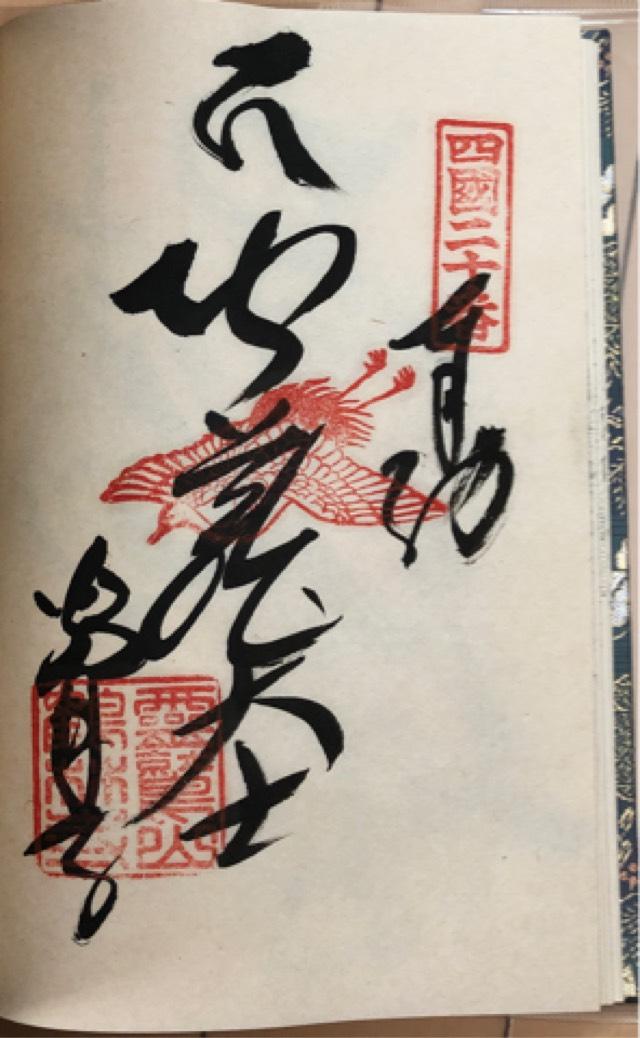 四國二十番
奉納
地蔵大士
靈鷲山
鶴林寺